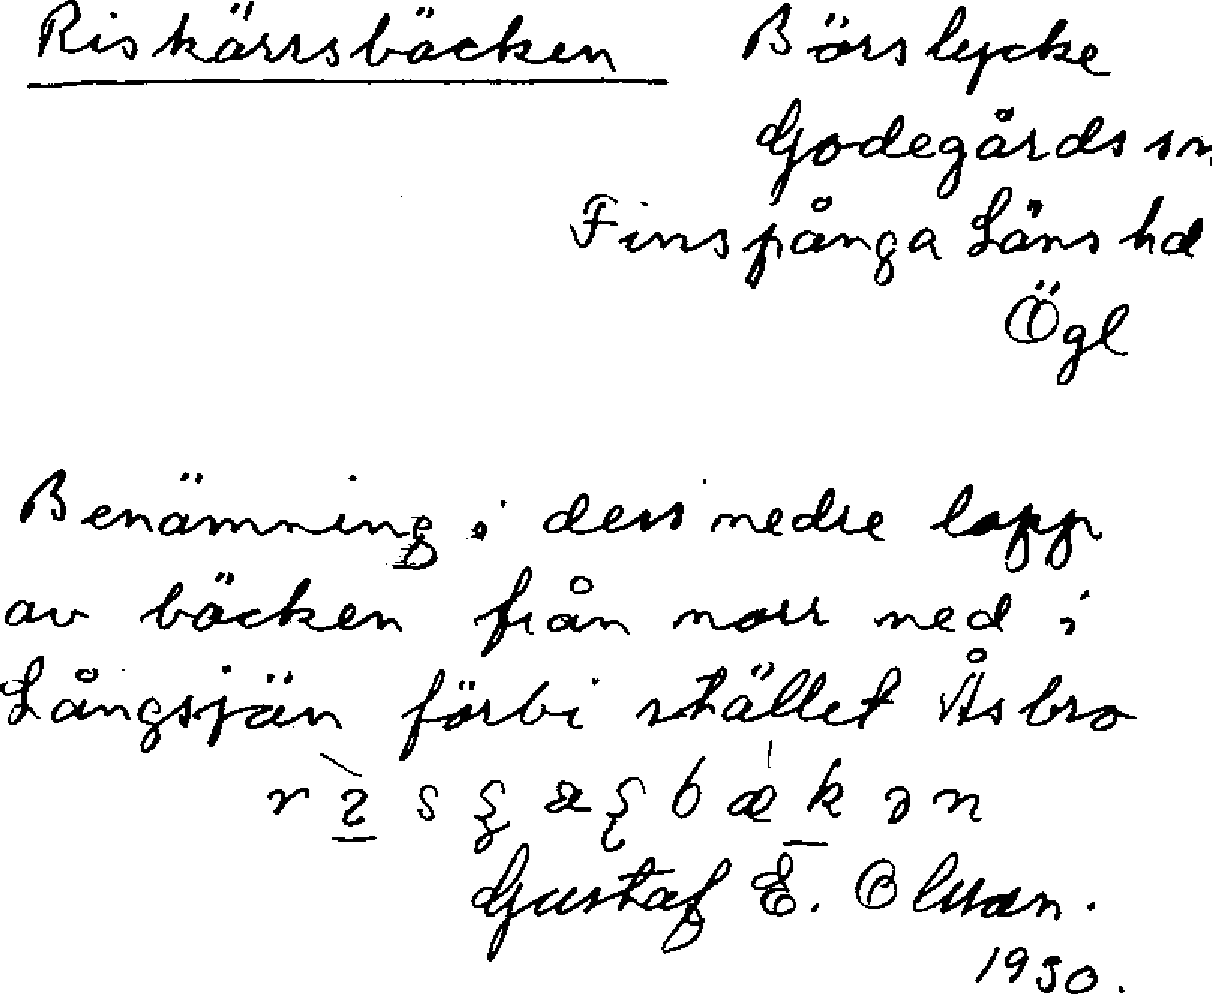 Riskärrsbäcken Börslycke
Godegårds sn
Finspånga Läns hd
Ögl
Benämning i dess nedre lopp
av bäcken från norr ned i
Långsjön förbi stället Åsbro
Gustaf E. Olsson.
1930.